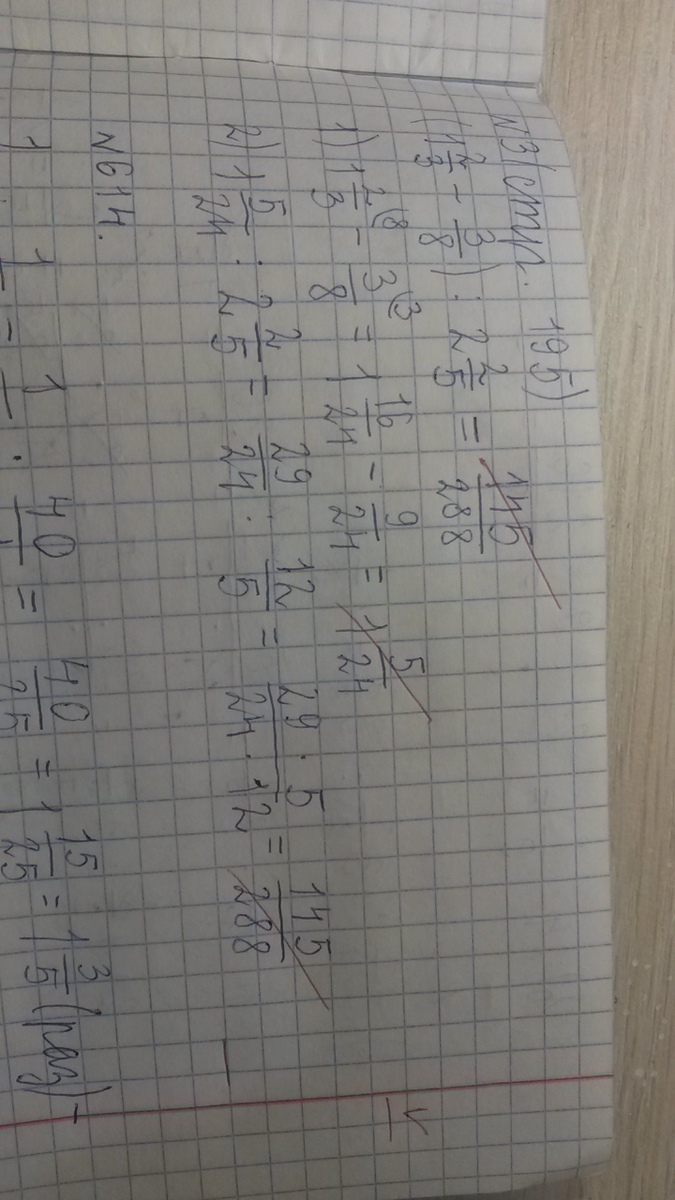 №3 (стр. 195)
(1 2/3 - 3/8) : 2 2/5 = 145/288
1) 1 2/3 (8 - 3/8 (3 = 1 16/24 - 9/24 = 1 5/24
2) 1 5/24 : 2 2/5 = 29/24 : 12/5 = 29 · 5/24 · 12 = 145/288
№614.
40/25 = 1 15/25 = 1 3/5 (раз) -